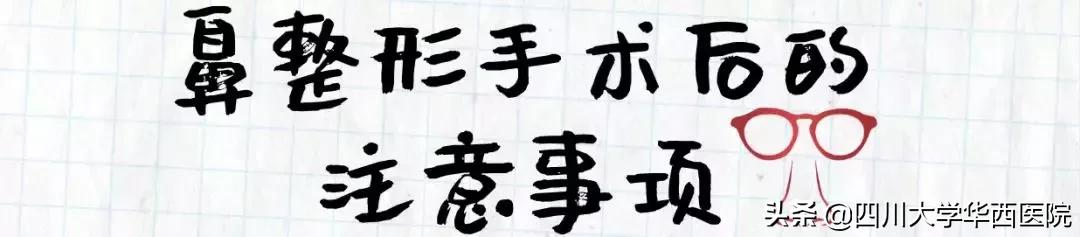 鼻整形手术后的
注意事项
头条@四川大学华西医院